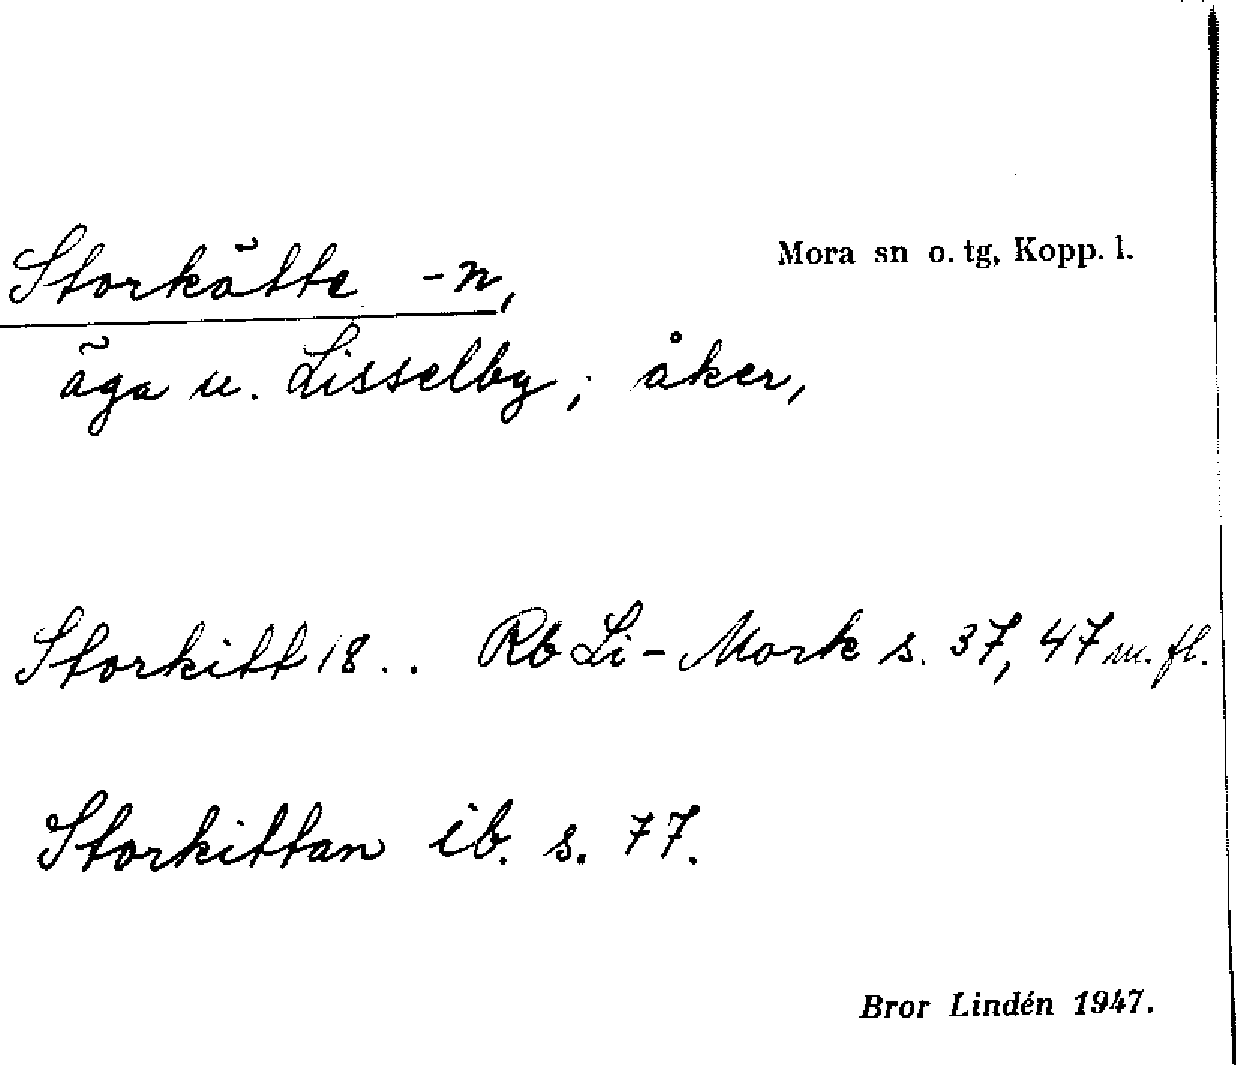 Storkätte -n,
Mora sn o. tg, Kopp. l.
äga u. Lisselby; åker,
Storkitt 18.. Rb Li-Mork s. 37, 47 m. fl.
Storkittan ib. s. 77.
Bror Lindén 1947.